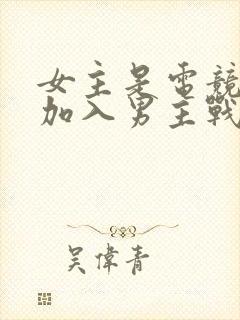 女主是電競
加入男主戰
吳偉青